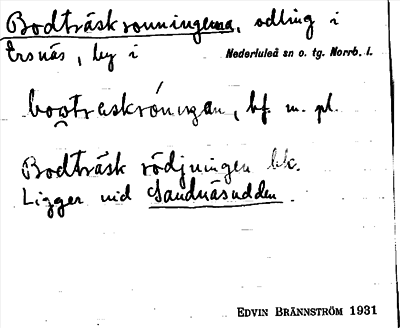 Bodträskronningerna, odling i
Ersnäs, by i Nederluleå sn o. tg. Norrb. l.
bf. m. pl.
Bodträsk rödjningen
Ligger vid Sandnäsudden.
EDVIN BRÄNNSTRÖM 1931